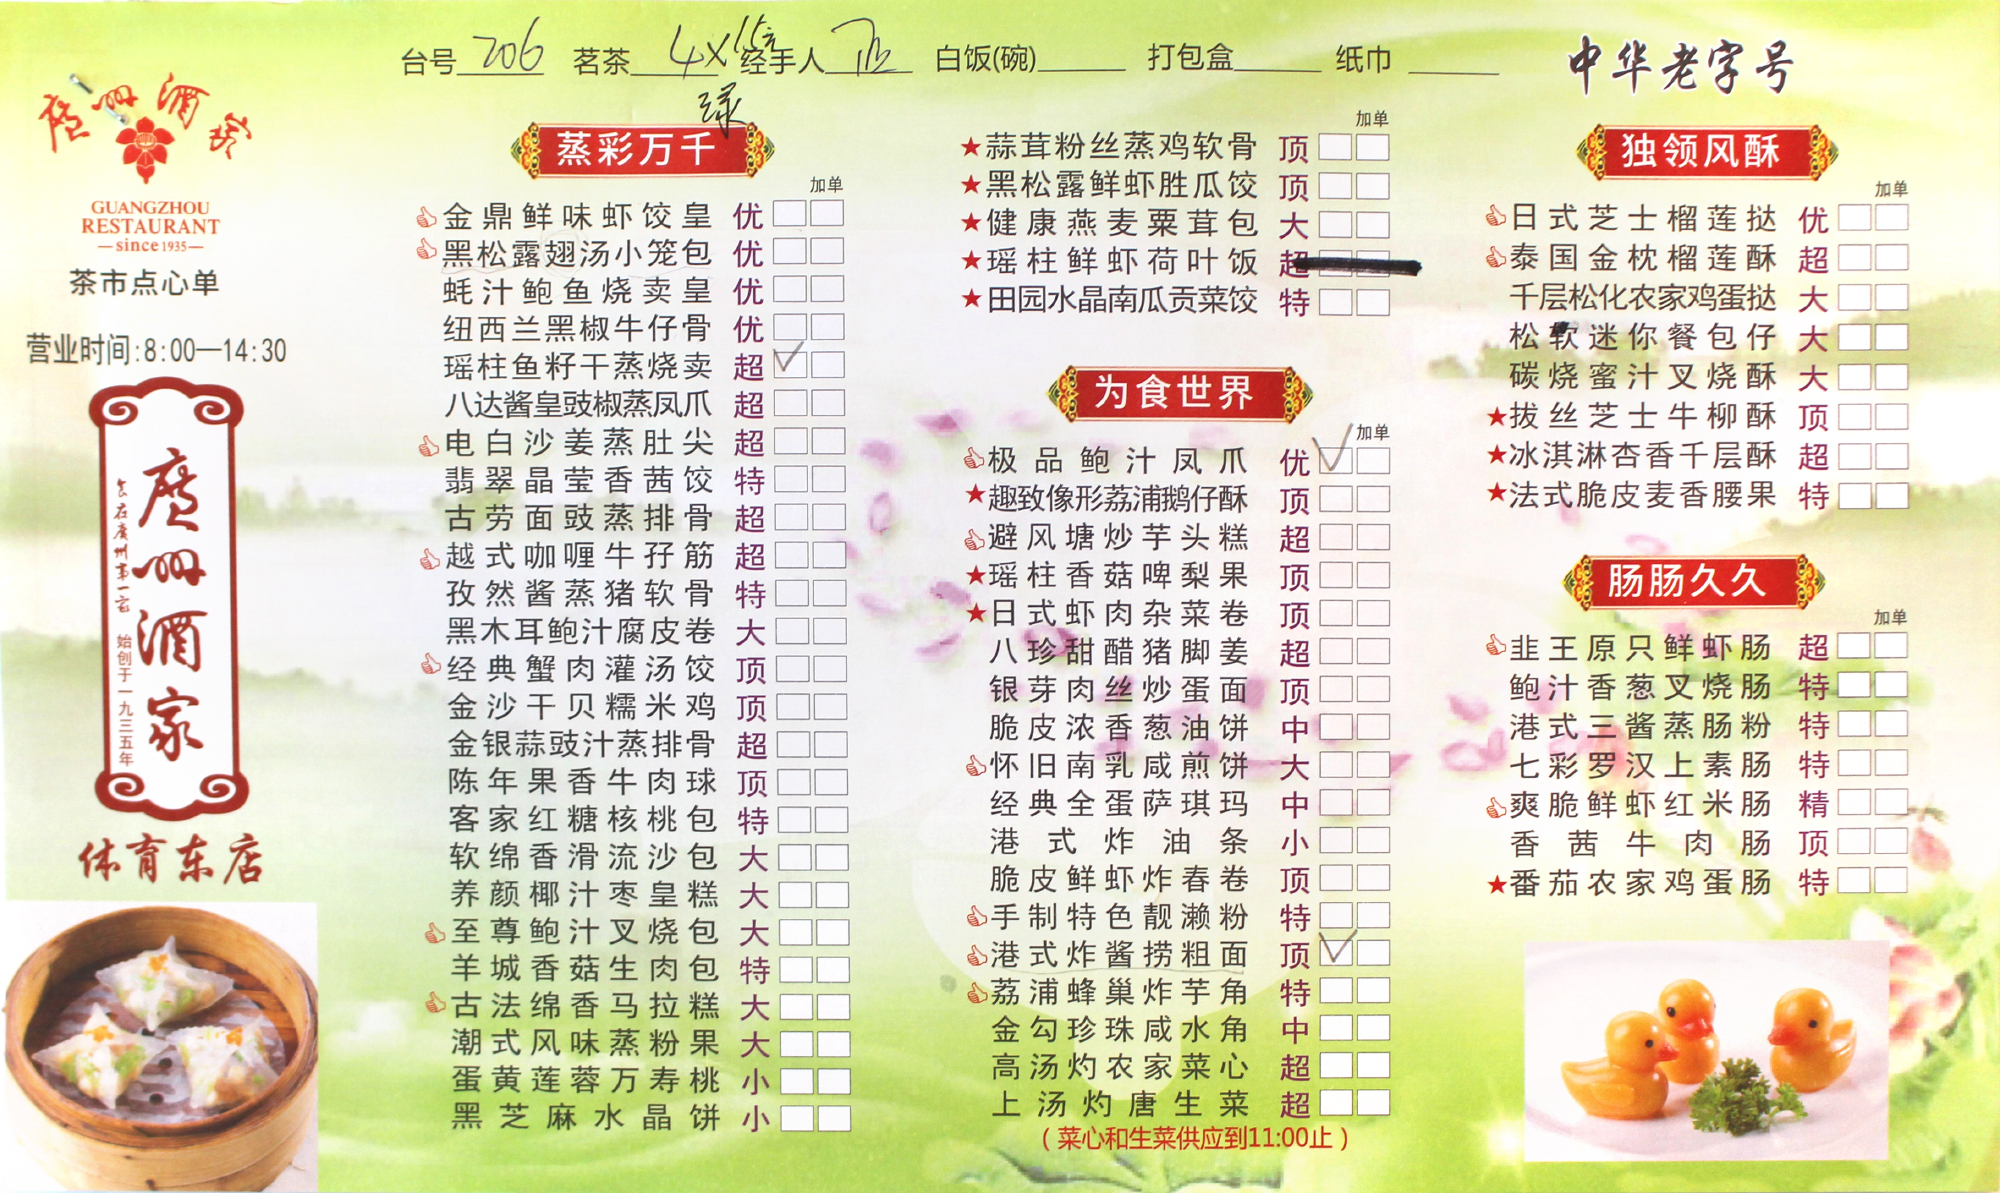 台号 206 茗茶 4×15元 经手人 白饭(碗) 打包盒 纸巾
绿
中华老字号
廣州酒家
GUANGZHOU
RESTAURANT
since 1935
茶市点心单
营业时间:8:00—14:30
廣州酒家
食在廣州第一家 始创于一九三五年
体育东店
蒸彩万千
加单
金鼎鲜味虾饺皇 优
黑松露翅汤小笼包 优
蚝汁鲍鱼烧卖皇 优
纽西兰黑椒牛仔骨 优
瑶柱鱼籽干蒸烧卖 超 ✓
八达酱皇豉椒蒸凤爪 超
电白沙姜蒸肚尖 超
翡翠晶莹香茜饺 特
古劳面豉蒸排骨 超
越式咖喱牛孖筋 超
孜然酱蒸猪软骨 特
黑木耳鲍汁腐皮卷 大
经典蟹肉灌汤饺 顶
金沙干贝糯米鸡 顶
金银蒜豉汁蒸排骨 超
陈年果香牛肉球 顶
客家红糖核桃包 特
软绵香滑流沙包 大
养颜椰汁枣皇糕 大
至尊鲍汁叉烧包 大
羊城香菇生肉包 特
古法绵香马拉糕 大
潮式风味蒸粉果 大
蛋黄莲蓉万寿桃 小
黑芝麻水晶饼 小
加单
★蒜茸粉丝蒸鸡软骨 顶
★黑松露鲜虾胜瓜饺 顶
★健康燕麦粟茸包 大
★瑶柱鲜虾荷叶饭 超
★田园水晶南瓜贡菜饺 特
为食世界
加单
极品鲍汁凤爪 优 ✓
★趣致像形荔浦鹅仔酥 顶
避风塘炒芋头糕 超
★瑶柱香菇啤梨果 顶
★日式虾肉杂菜卷 顶
八珍甜醋猪脚姜 超
银芽肉丝炒蛋面 顶
脆皮浓香葱油饼 中
怀旧南乳咸煎饼 大
经典全蛋萨琪玛 中
港式炸油条 小
脆皮鲜虾炸春卷 顶
手制特色靓濑粉 特
港式炸酱捞粗面 顶 ✓
荔浦蜂巢炸芋角 特
金勾珍珠咸水角 中
高汤灼农家菜心 超
上汤灼唐生菜 超
（菜心和生菜供应到11:00止）
独领风酥
加单
日式芝士榴莲挞 优
泰国金枕榴莲酥 超
千层松化农家鸡蛋挞 大
松软迷你餐包仔 大
碳烧蜜汁叉烧酥 大
★拔丝芝士牛柳酥 顶
★冰淇淋杏香千层酥 超
★法式脆皮麦香腰果 特
肠肠久久
加单
韭王原只鲜虾肠 超
鲍汁香葱叉烧肠 特
港式三酱蒸肠粉 特
七彩罗汉上素肠 特
爽脆鲜虾红米肠 精
香茜牛肉肠 顶
★番茄农家鸡蛋肠 特